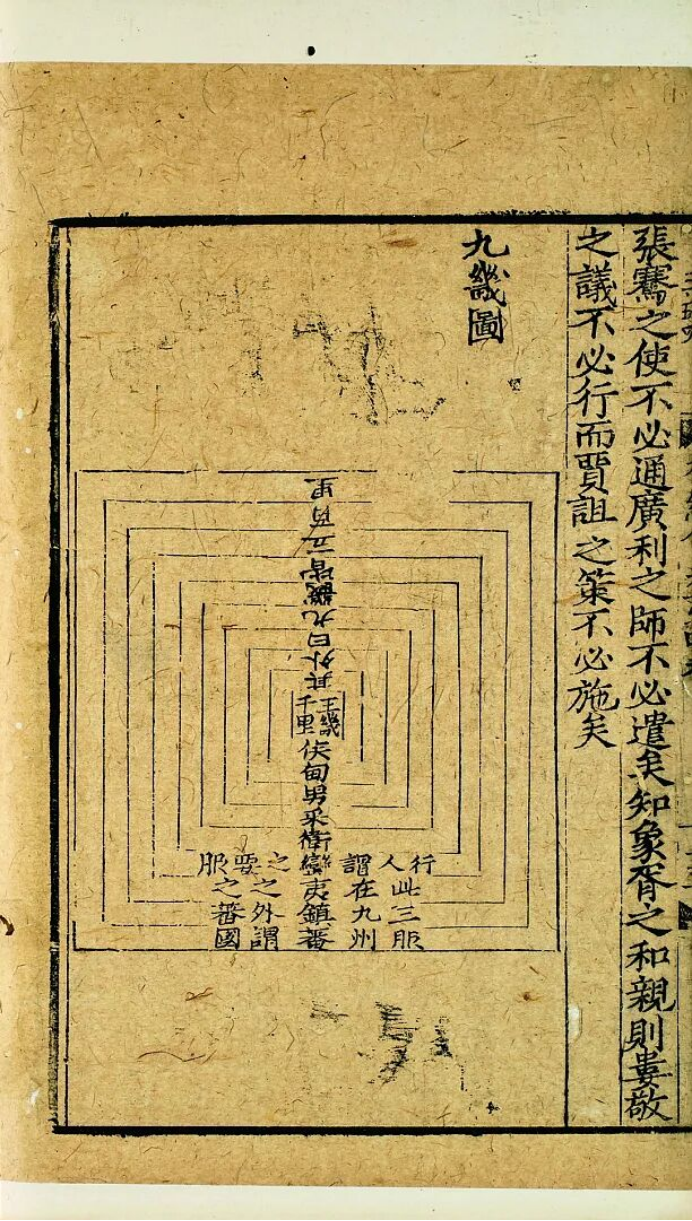 張騫之使不必通廣利之師不必遣矣知象胥之和親則婁敬
之議不必行而賈誼之策不必施矣
九畿圖
其外曰九畿皆五百里
王畿
千里
侯甸男采衛蠻夷鎮蕃
行人謂之要服
此三服
在九州
之外謂
之蕃國